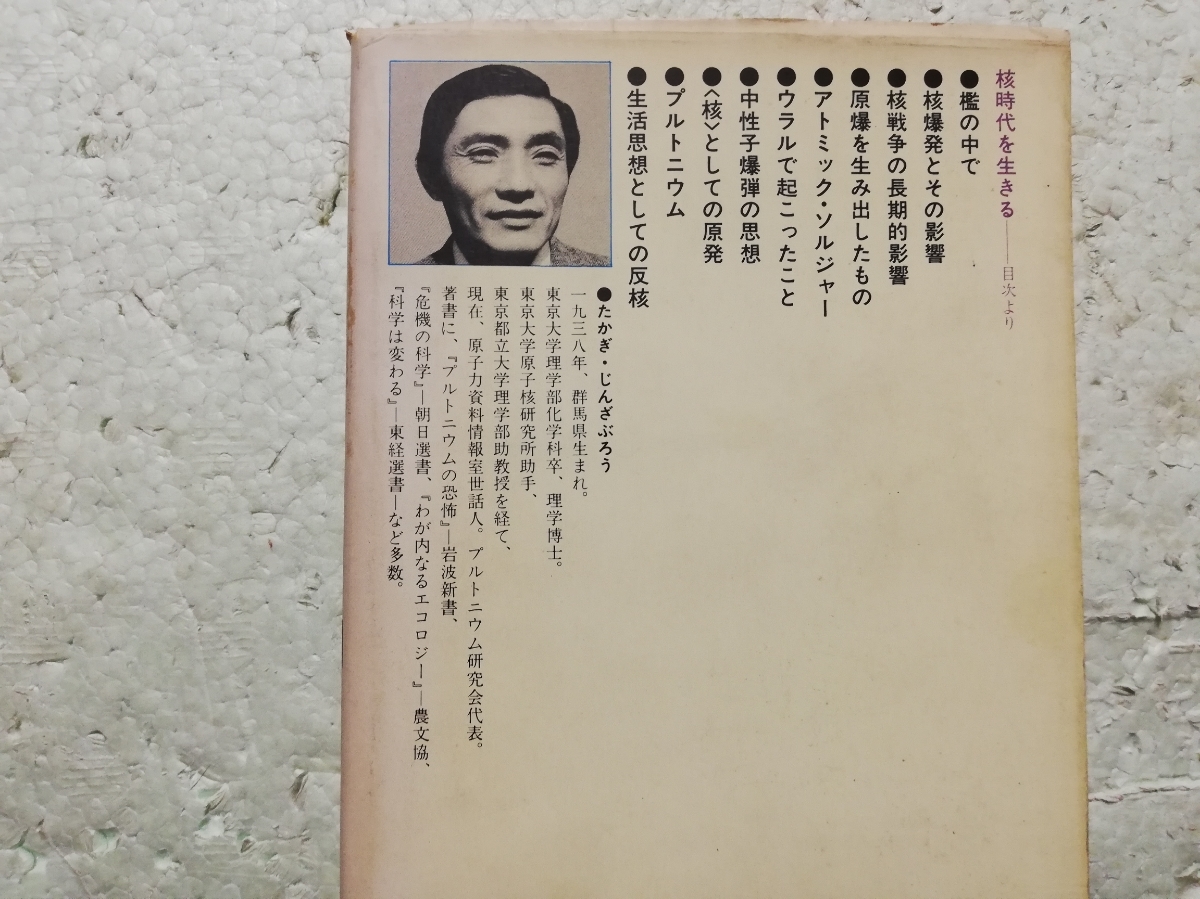 核時代を生きる――目次より
●檻の中で
●核爆発とその影響
●核戦争の長期的影響
●原爆を生み出したもの
●アトミック・ソルジャー
●ウラルで起こったこと
●中性子爆弾の思想
●〈核〉としての原発
●プルトニウム
●生活思想としての反核
●たかぎ・じんざぶろう
一九三八年、群馬県生まれ。
東京大学理学部化学科卒、理学博士。
東京大学原子核研究所助手、
東京都立大学理学部助教授を経て、
現在、原子力資料情報室世話人。プルトニウム研究会代表。
著書に、『プルトニウムの恐怖』―岩波新書、
『危機の科学』―朝日選書、『わが内なるエコロジー』―農文協、
『科学は変わる』―東経選書―など多数。